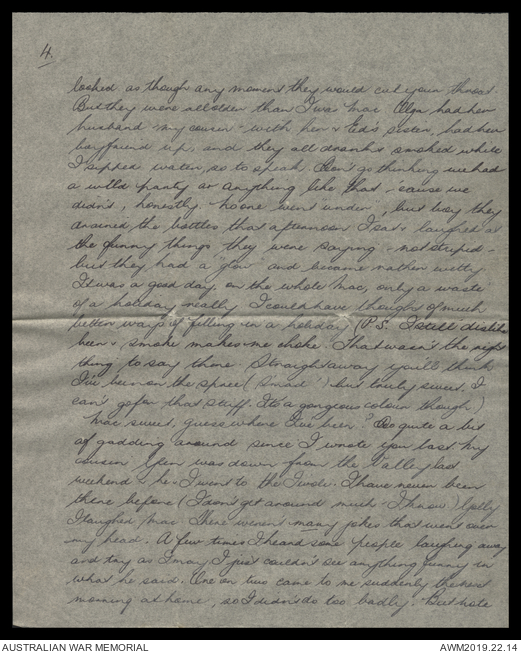 4.
looked as though any moment they would cut your throat
But they were all older than I was Mac. Olga had her
husband - my cousin - with her & Ed's sister, had her
boyfriend up, and they all drank & smoked while
I sipped water, so to speak. Don't go thinking we had
a wild party or anything like that - 'cause we
didn't, honestly. No one went "under", but boy they
drained the bottles that afternoon. I sat & laughed at
the funny things they were saying - not stupid -
but they had a "glow" and became rather witty.
It was a good day, on the whole Mac, only a waste
of a holiday really. I could have thought of much
better ways of filling in a holiday (P.S. I still dislike
beer & smoke makes me choke. That wasn't the right
thing to say there. Straight away you'll think
I've been on the spree ( ) but truly sweet, I
can't go for that stuff. It's a gorgeous colour though.)
Mac sweet, guess where I've been. Do quite a bit
of gadding around since I wrote you last. My
cousin was down from the Valley last
weekend & he & I went to the Tivoli. I have never been
there before (I don't get around much - I know) Golly
I laughed, Mac. There weren't many jokes that went over
my head. A few times I heard some people laughing away
and try as I may I just couldn't see anything funny in
what he said. One or two came to me suddenly the next
morning at home, so I didn't do too badly. But note
AUSTRALIAN WAR MEMORIAL
AWM2019.22.14